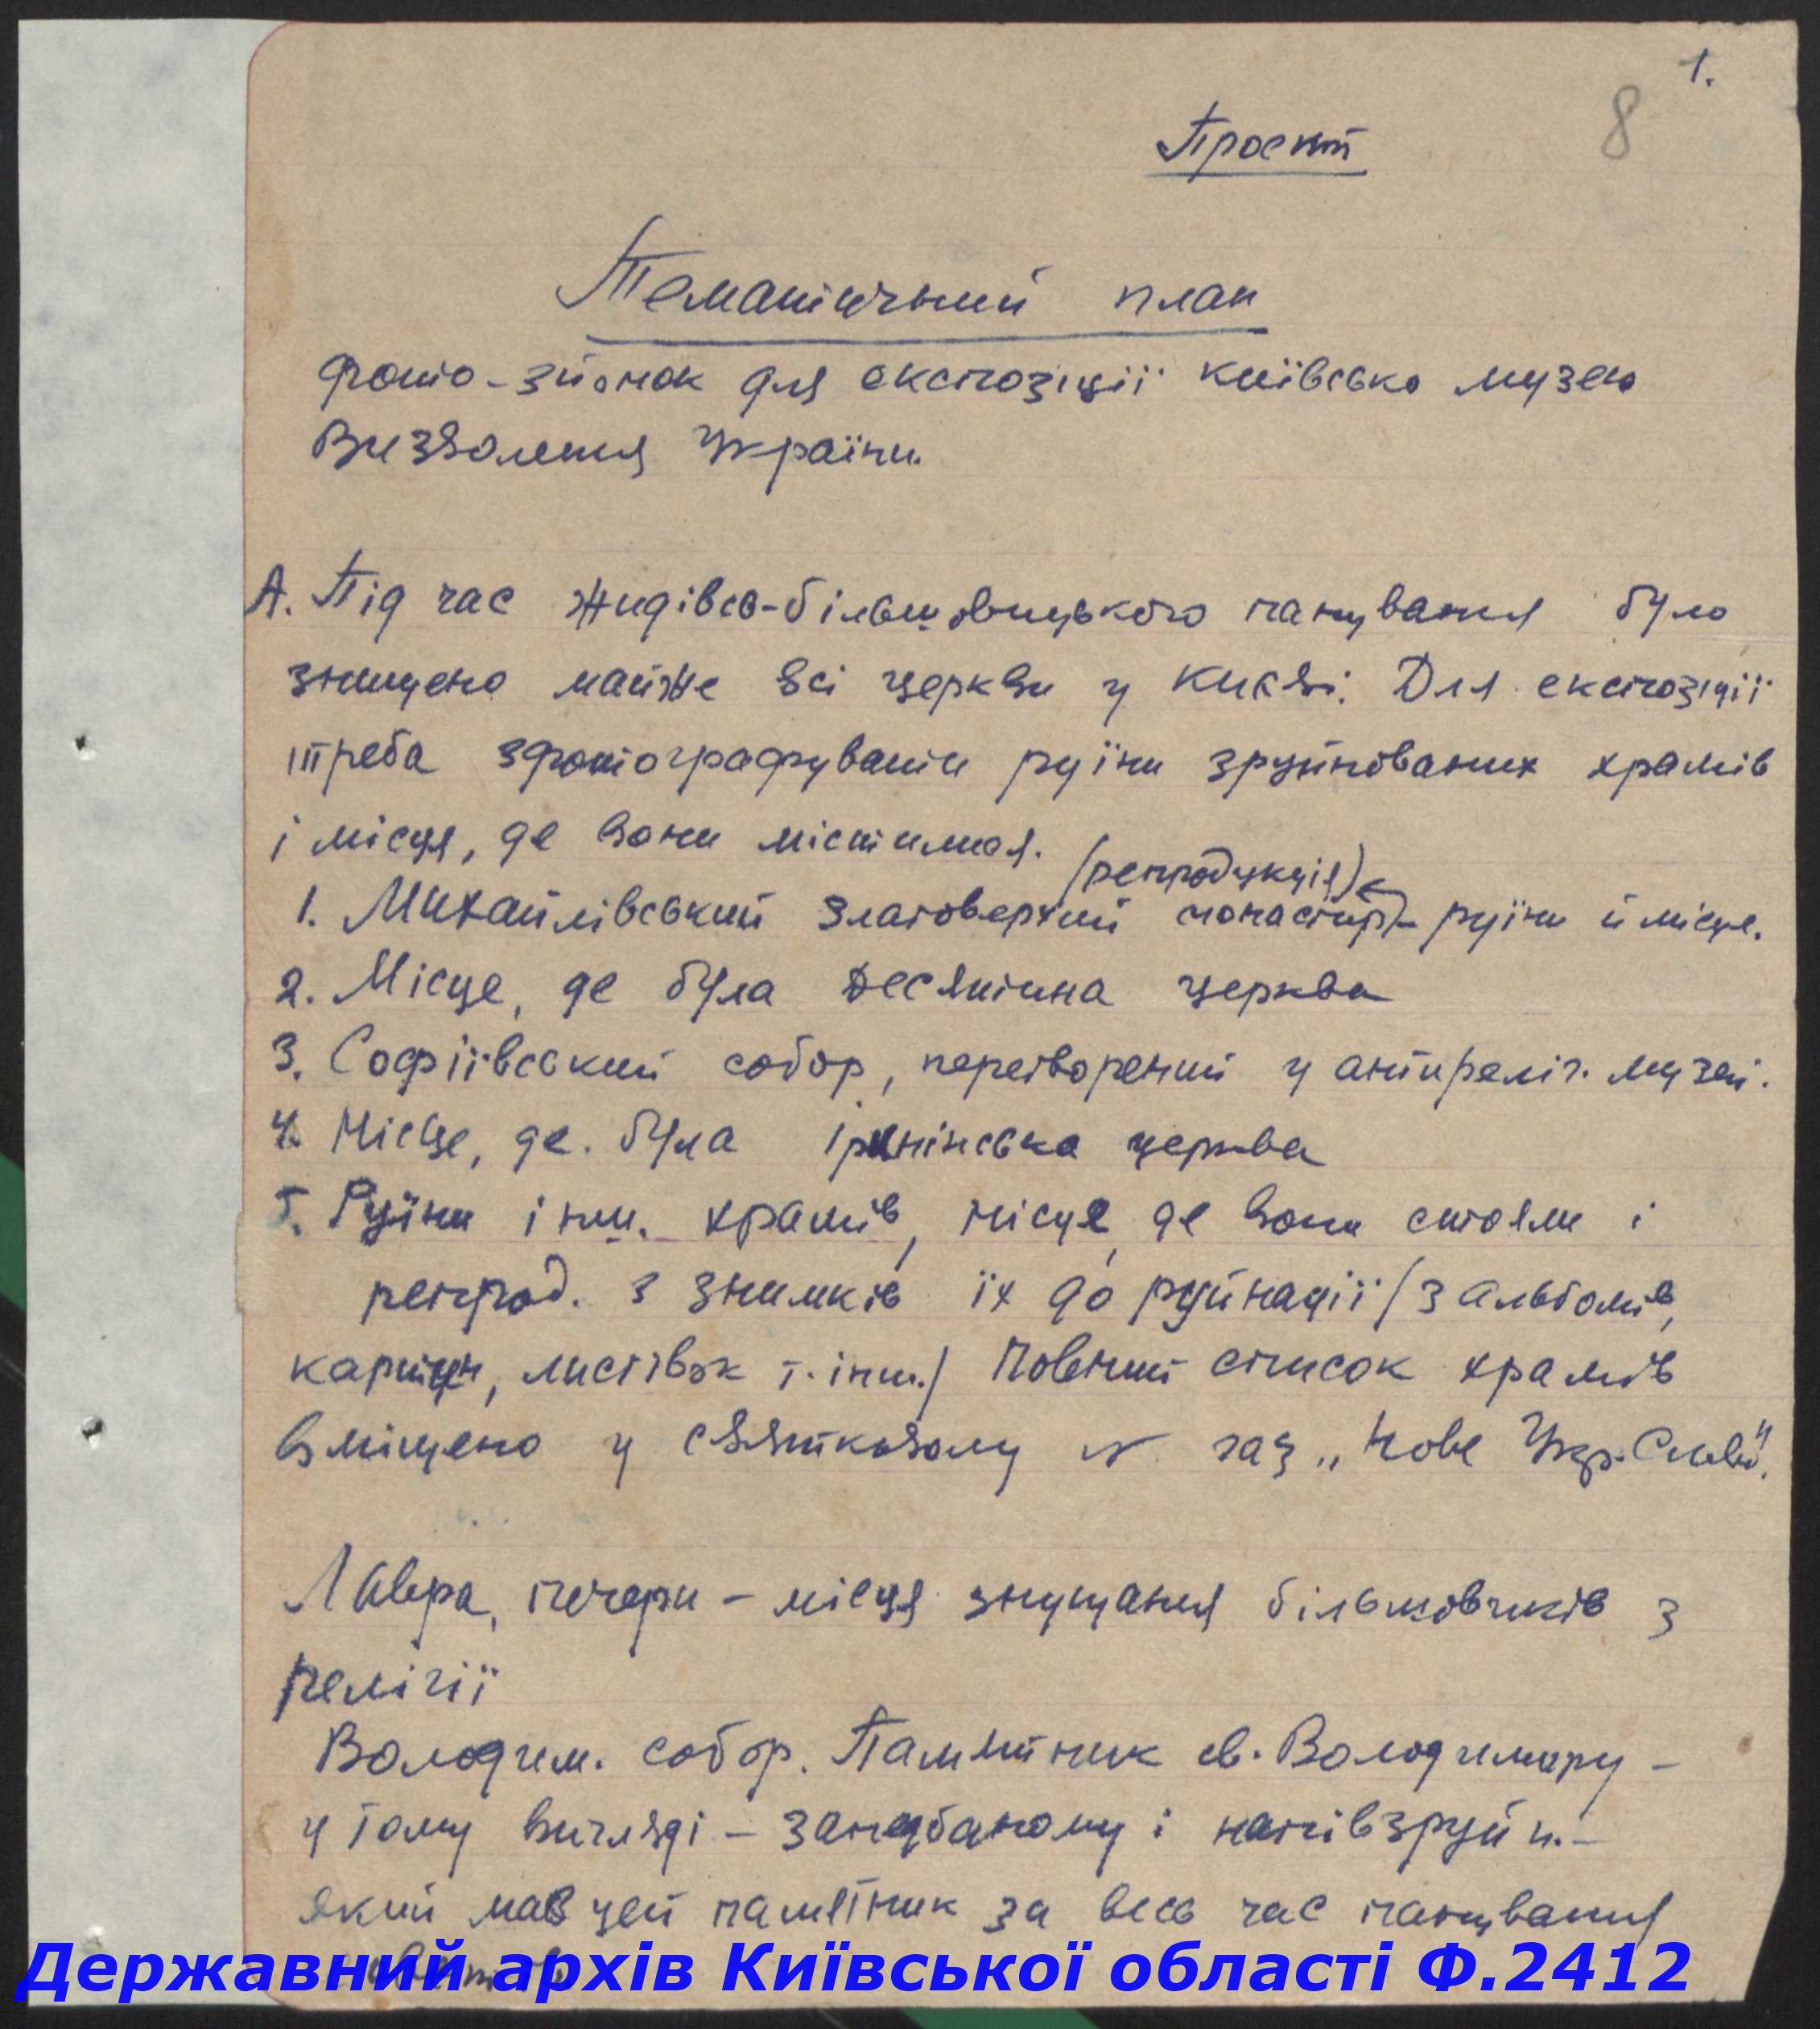 1.
8
Проект
Тематичний план
фото-зйомок для експозиції київсько музею
Визволення України.
А. Під час жидівсь-більшовицького панування було
знищено майже всі церкви у Києві. Для експозиції
треба зфотографувати руїни зруйнованих храмів
і місця, де вони містились.
(репродукція)
1. Михайлівський Златоверхий монастир - руїни й місце.
2. Місце, де була Десятинна церква
3. Софіївський собор, перетворений у антиреліг. музей.
4. Місце, де була Ірининська церква
5. Руїни інш. храмів, місце, де вони стояли і
репрод. з знимків їх до руйнації (з альбомів,
картин, листівок т. інш.) Повний список храмів
вміщено у святковому № газ „Нове Укр. Слово".
Лавра, печери - місця знущання більшовиків з
релігії
Володим. собор. Памятник св. Володимиру -
у тому вигляді - занедбаному і напівзруйн. -
який мав цей памятник за весь час панування
Державний архів Київської області Ф.2412